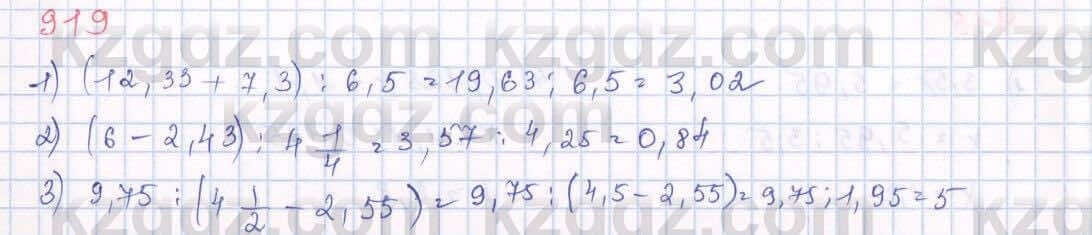 919
1) (12,33 + 7,3) : 6,5 = 19,63 : 6,5 = 3,02
2) (6 - 2,43) : 4 1/4 = 3,57 : 4,25 = 0,84
3) 9,75 : (4 1/2 - 2,55) = 9,75 : (4,5 - 2,55) = 9,75 : 1,95 = 5
kzgdz.com kzgdz.com
kzgdz.com kzgdz.com